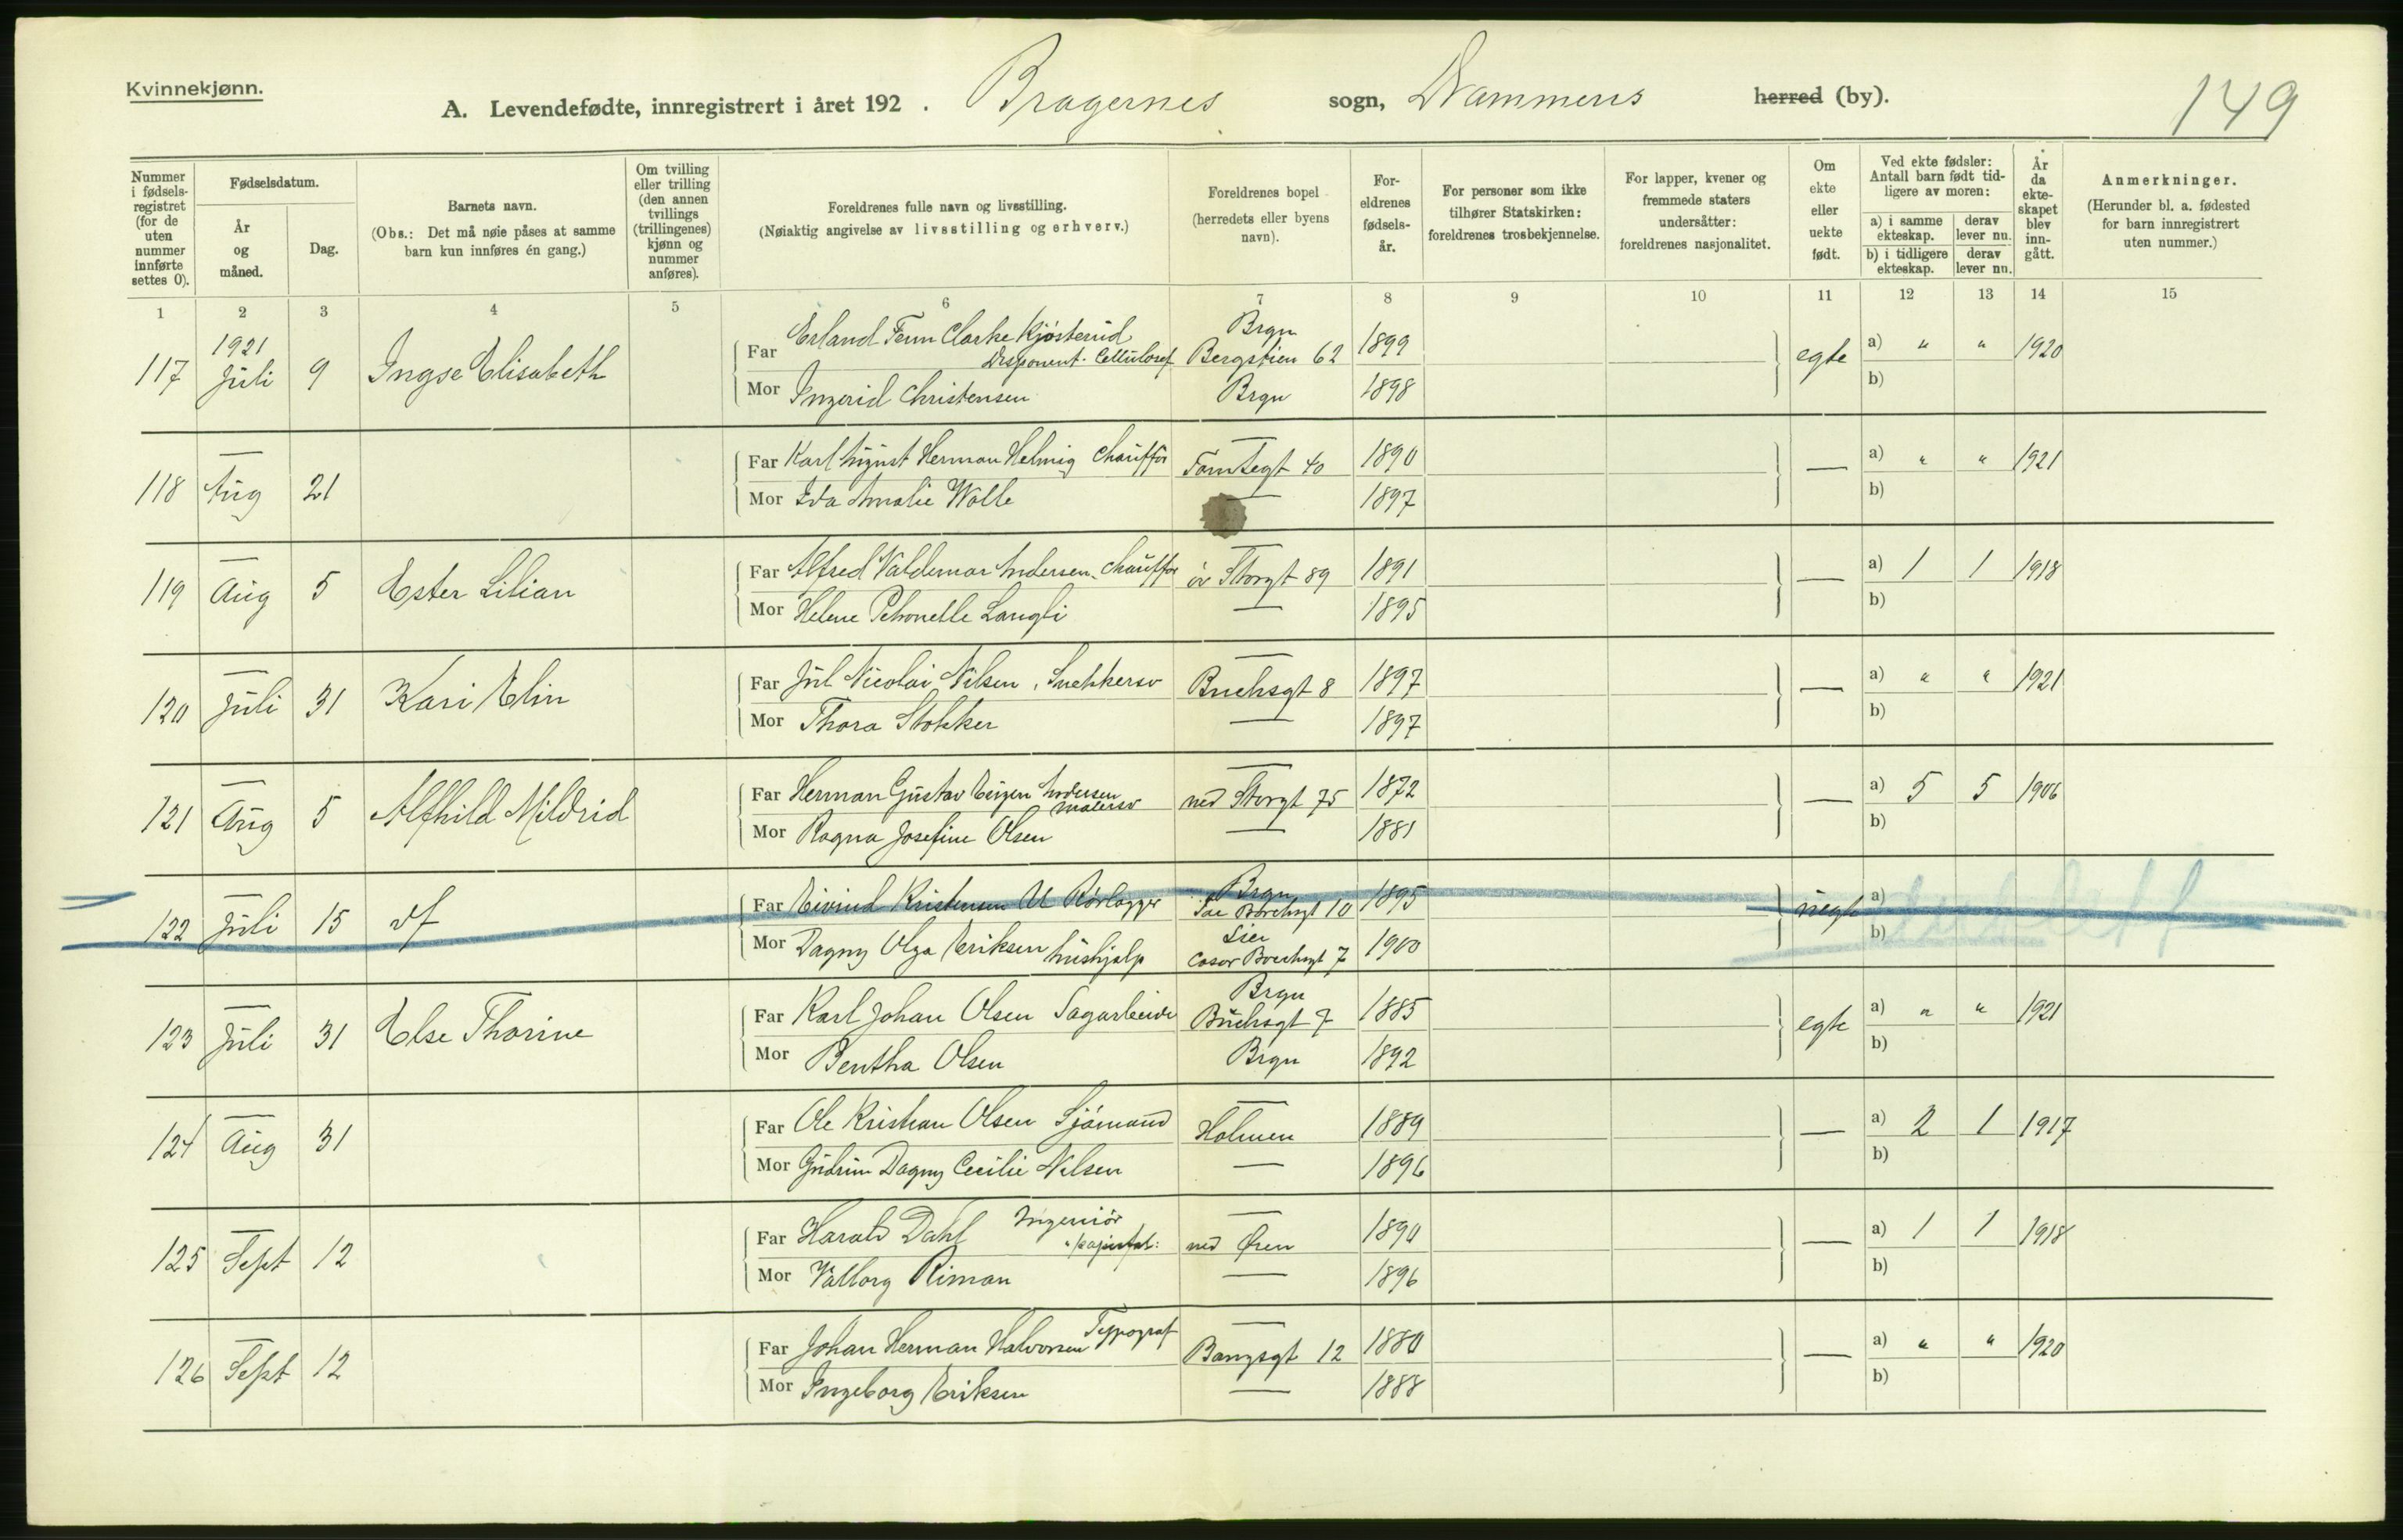 Kvinnekjønn.
A. Levendefødte, innregistrert i året 192 . Bragernes sogn, Drammens herred (by). 149
Nummer i fødsels-registret (for de uten nummer innførte settes 0).
Fødselsdatum.
År og måned.
Dag.
Barnets navn.
(Obs.: Det må nøie påses at samme barn kun innføres én gang.)
Om tvilling eller trilling (den annen tvillings (trillingenes) kjønn og nummer anføres).
Foreldrenes fulle navn og livsstilling.
(Nøiaktig angivelse av livsstilling og erhverv.)
Foreldrenes bopel (herredets eller byens navn).
For-eldrenes fødsels-år.
For personer som ikke tilhører Statskirken: foreldrenes trosbekjennelse.
For lapper, kvener og fremmede staters undersåtter: foreldrenes nasjonalitet.
Om ekte eller uekte født.
Ved ekte fødsler: Antall barn født tid-ligere av moren:
a) i samme ekteskap. derav lever nu.
b) i tidligere ekteskap. derav lever nu.
År da ekte-skapet blev inn-gått.
Anmerkninger.
(Herunder bl. a. fødested for barn innregistrert uten nummer.)
1 2 3 4 5 6 7 8 9 10 11 12 13 14 15
117 1921 Juli 9 Ingse Elisabeth
Far Erland Fenn Clarke Kjøsterud Disponent. Cellulosef Brgn Bergstien 62 1899 egte a) " " 1920
Mor Ingerid Christensen Brgn 1898 b)
118 — Aug 21
Far Karl August Herman Helmig Chauffør — Tomtegt 40 1890 — a) " " 1921
Mor Eva Amalie Wolle — 1897 b)
119 — Aug 5 Ester Lilian
Far Alfred Valdemar Andersen. Chauffør — øv Storgt 89 1891 — a) 1 1 1918
Mor Helene Petronelle Langli — 1895 b)
120 — Juli 31 Kari Elin
Far Jul Nicolai Nilsen, Snekkersv — Buchsgt 8 1897 — a) " " 1921
Mor Thora Stokker — 1897 b)
121 — Aug 5 Alfhild Mildrid
Far Herman Gustav Eugen Andersen malersv — ned Storgt 75 1872 — a) 5 5 1906
Mor Ragna Josefine Olsen — 1881 b)
122 — Juli 15 df
Far Eivind Kristensen Rørlegger Brgn 10 1895 uegte a)
Mor Dagny Olga Eriksen hushjalp Lier 7 1900 b)
123 — Juli 31 Else Thorine
Far Karl Johan Olsen Sagarbeide Brgn Buchsgt 7 1885 egte a) " " 1921
Mor Bentha Olsen Brgn 1892 b)
124 — Aug 31
Far Ole Kristian Olsen Sjømand — Holmen 1889 — a) 2 1 1917
Mor Gudrun Dagny Cecilie Nilsen — 1896 b)
125 — Sept 12
Far Harald Dahl Ingeniør — ned Øren 1890 — a) 1 1 1918
Mor Valborg Riman — 1896 b)
126 — Sept 12
Far Johan Herman Halvorsen Typograf — Bangsgt 12 1880 — a) " " 1920
Mor Ingeborg Eriksen — 1888 b)